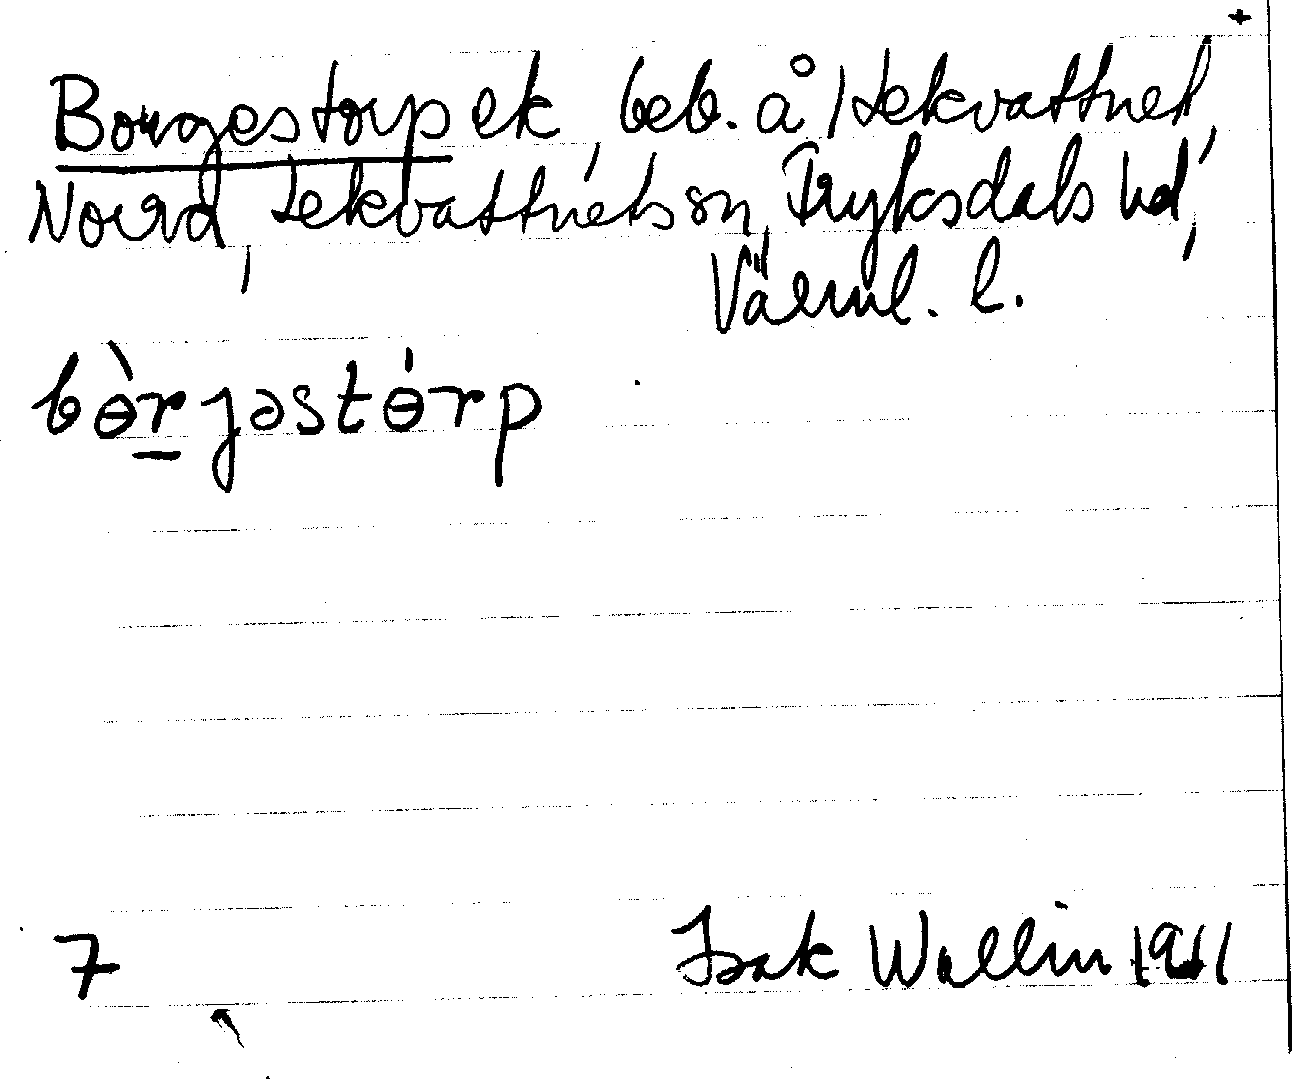 +
Borgestorp ek, beb. å 1 Lekvattnet,
Norra, Lekvattnets sn, Fryksdals hd,
Värml. l.
bɵ̀rjəstɵ́rp
7 Isak Wallin 1911